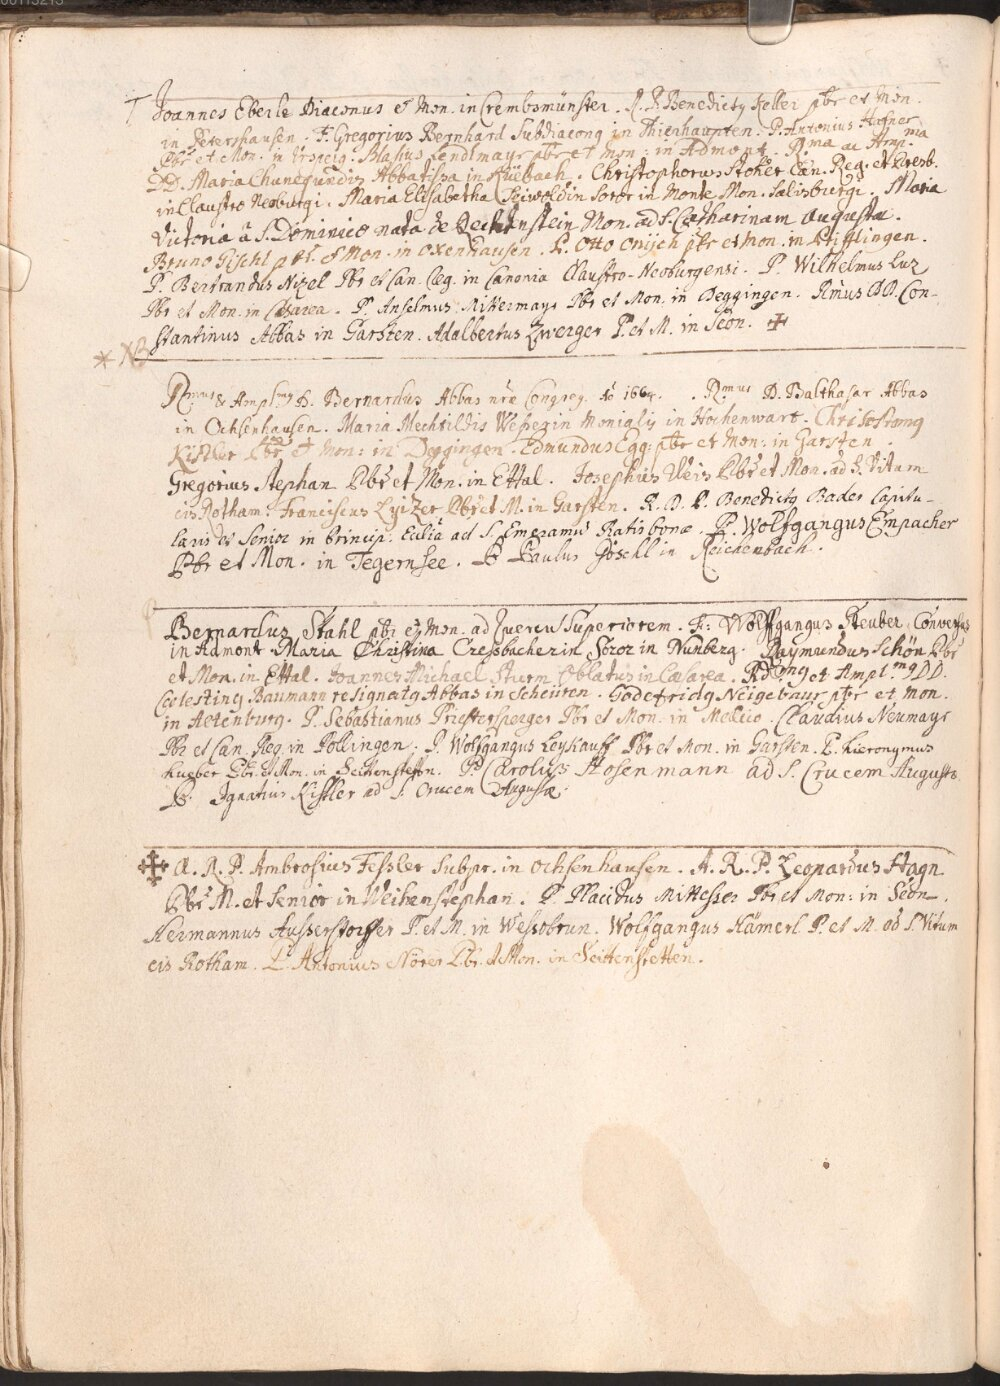 00113213
† Joannes Eberle Diaconus et Mon. in Crembsmünster. R. P. Benedictq Keller pbr et Mon.
in Petershausen. F. Gregorius Bernhard Subdiaconq in Thierhaupten. P. Antonius Hafner
Pbr et Mon. in Blasius Lendlmayr pbr et mon: in Admont. Rma ac Amp.ma
DD. Maria Chunegundis Abbatissa in Küebach. Christophorus Stoher Can. Reg. et Presb.
in Claustro Neoburgi. Maria Elisabetha Seiwoldin Soror in Monte Mon. Salisburgi. Maria
Victoria à S. Dominico nata de Mon. ad S. Catharinam Augustæ.
Bruno Gischl pbr. et Mon. in Oxenhausen. P. Otto pbr et mon. in Prifflingen.
P. Bertrandus Nizel Pbr et Can. Reg. in Canonia Claustro-Neoburgensi. P. Wilhelmus Luz
Pbr et Mon. in Cæsarea. P. Anselmus Mittermayr Pbr et Mon. in Deggingen. Rmus DD. Con-
stantinus Abbas in Garsten. Adalbertus Zwerger P. et M. in Seon. ✠
* NB
Rmus & Amplmq D. Bernardus Abbas nræ Congreg. aõ 1664. Rmus D. Balthasar Abbas
in Ochsenhausen. Maria Mechtildis in Hochenwart. Christophorq
Kistler Pbr et Mon: in Deggingen. Edmundus Egg: pbr et Mon: in Garsten.
Gregorius Stephan Pbr et Mon. in Ettal. Josephus Weis Pbr et Mon. ad S. Vitum
cis Rotham. Franciscus Lyizer Pbr et M. in Garsten. R. D. P. Benedictq Bader Capitu-
laris et Senior in Princip. Ecclia ad S. Emeramũ Ratisbonæ. P. Wolfgangus Empacher
Pbr et Mon. in Tegernsee. P Paulus Göschl in Reichenbach.
Bernardus Stahl pbr et Mon. ad Superiorem. F: Wolffgangus Steuber Conversus
in Admont. Maria Christina Cressbacherin Soror in Nünberg. Raymundus Schön Pbr
et Mon. in Ettal. Joannes Michael Sturm Oblatus in Cæsarea. Rdmq et Amplmq DD.
Cœlestinq Baumann resignatq Abbas in Scheüren. Godefridq Neigebaur pbr et mon.
in Aetenburg. P. Sebastianus Priestersperger Pbr et Mon. in Mellico. Claudius Neumayr
Pbr et Can. Reg. in Pollingen. P. Wolfgangus Leykauff Pbr et Mon. in Garsten. P. Hieronymus
Hueber Pbr. et Mon. in Seitenstettn. P. Carolus Hosenmann ad S. Crucem Augustæ
P. Ignatius Kistler ad S. Crucem Augustæ.
✠ A. R. P. Ambrosius Fessler Subpr. in Ochsenhausen. A. R. P. Leopardus Hagn
Pbr M. et Senior in Weihenstephan. P. Placidus Mittesser Pbr et Mon: in Seon.
Hermannus Ausserstorffer P. et M. in Wessobrun. Wolfgangus Hämerl P. et M. ad S. Vitum
cis Rotham. P. Antonius Nörer Pbr. et Mon. in Seittenstetten.